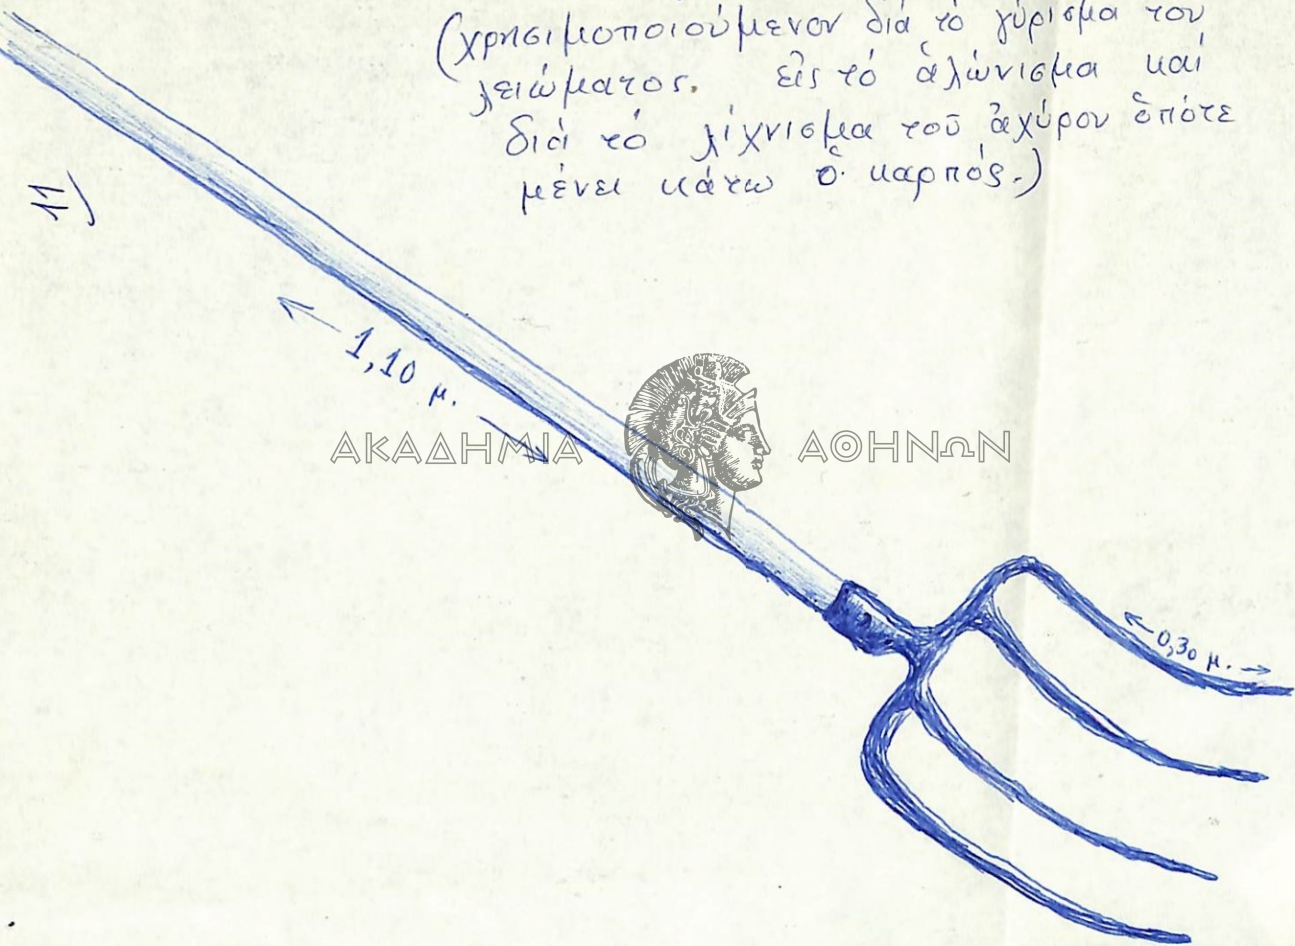 (χρησιμοποιούμενον διά τό γύρισμα του
λειώματος. εἰς τό ἁλώνισμα καί
διά τό λίχνισμα τοῦ ἀχύρου ὁπότε
μένει κάτω ὁ καρπός.)
11)
1,10 μ.
ΑΚΑΔΗΜΙΑ ΑΘΗΝΩΝ
0,30 μ.